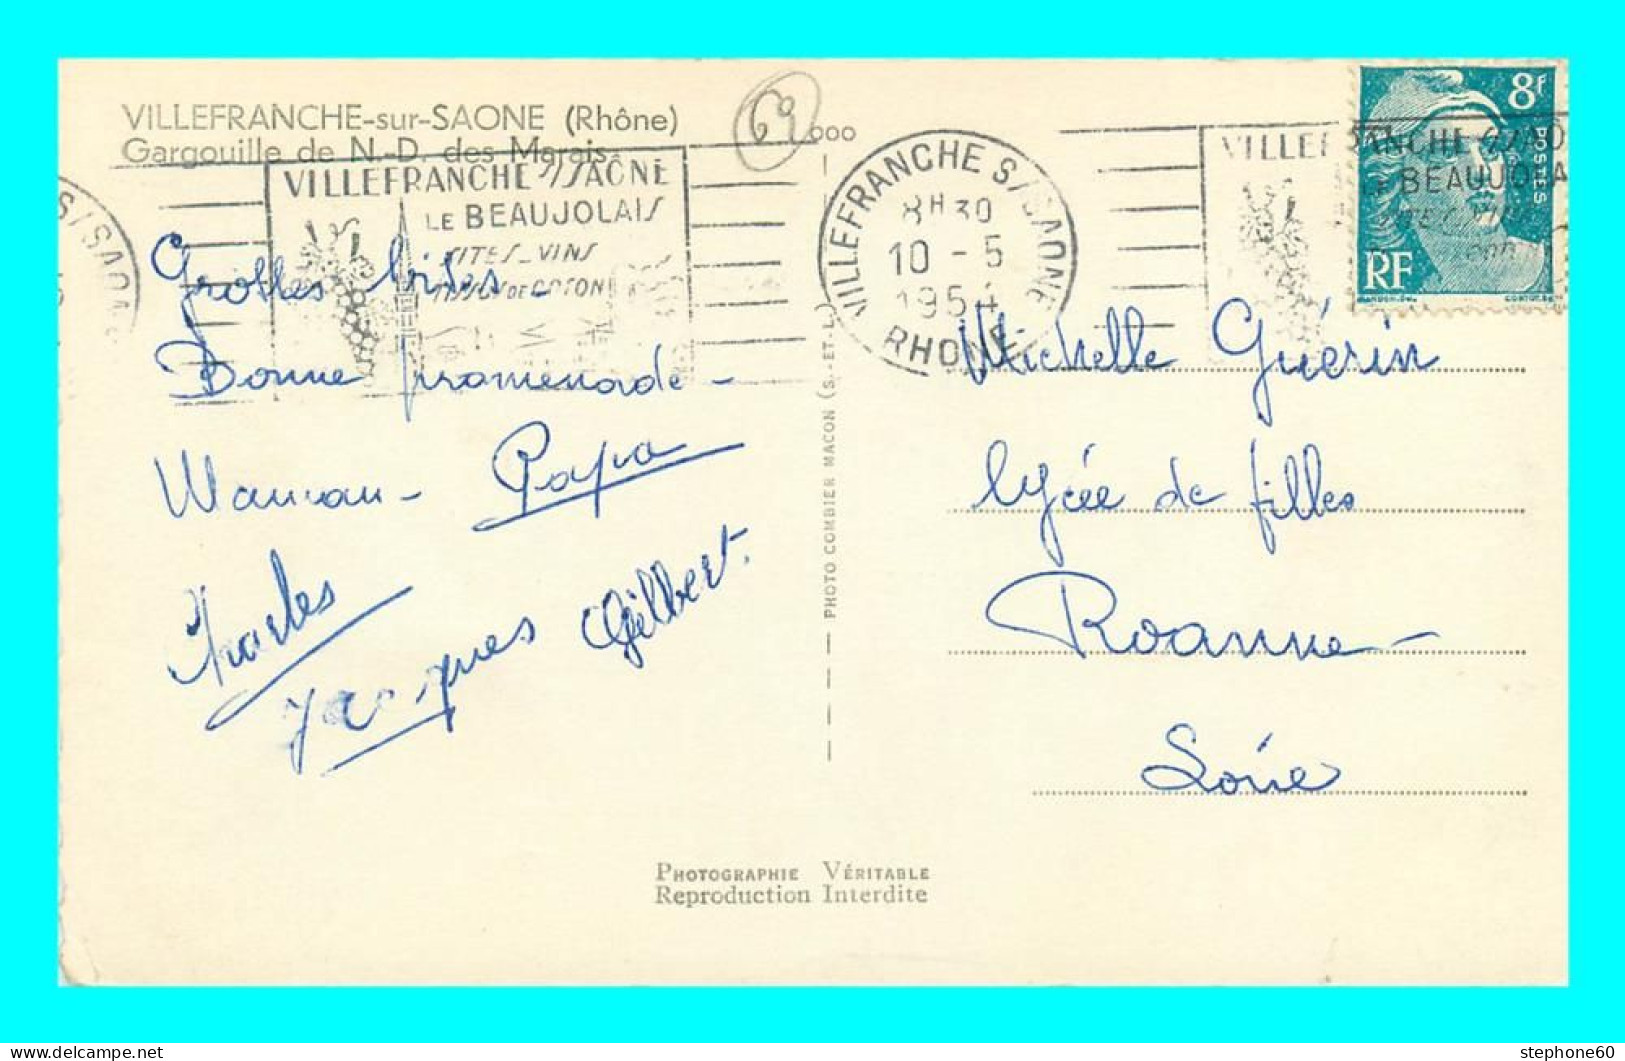 VILLEFRANCHE-sur-SAONE (Rhône)
Gargouille de N.-D. des Marais
69
VILLEFRANCHE S/SAÔNE
LE BEAUJOLAIS
SITES - VINS
TISSUS DE COTON
VILLEFRANCHE S/SAONE
8H30
10 - 5
1954
RHONE
8F
POSTES
RF
Grosses bises -
Bonne promenade -
Maman - Papa
Charles
Jacques Gilbert.
PHOTO COMBIER MACON (S.-ET-L.)
Michelle Guérin
lycée de filles
Roanne -
Loire
PHOTOGRAPHIE VÉRITABLE
Reproduction Interdite
stephone60